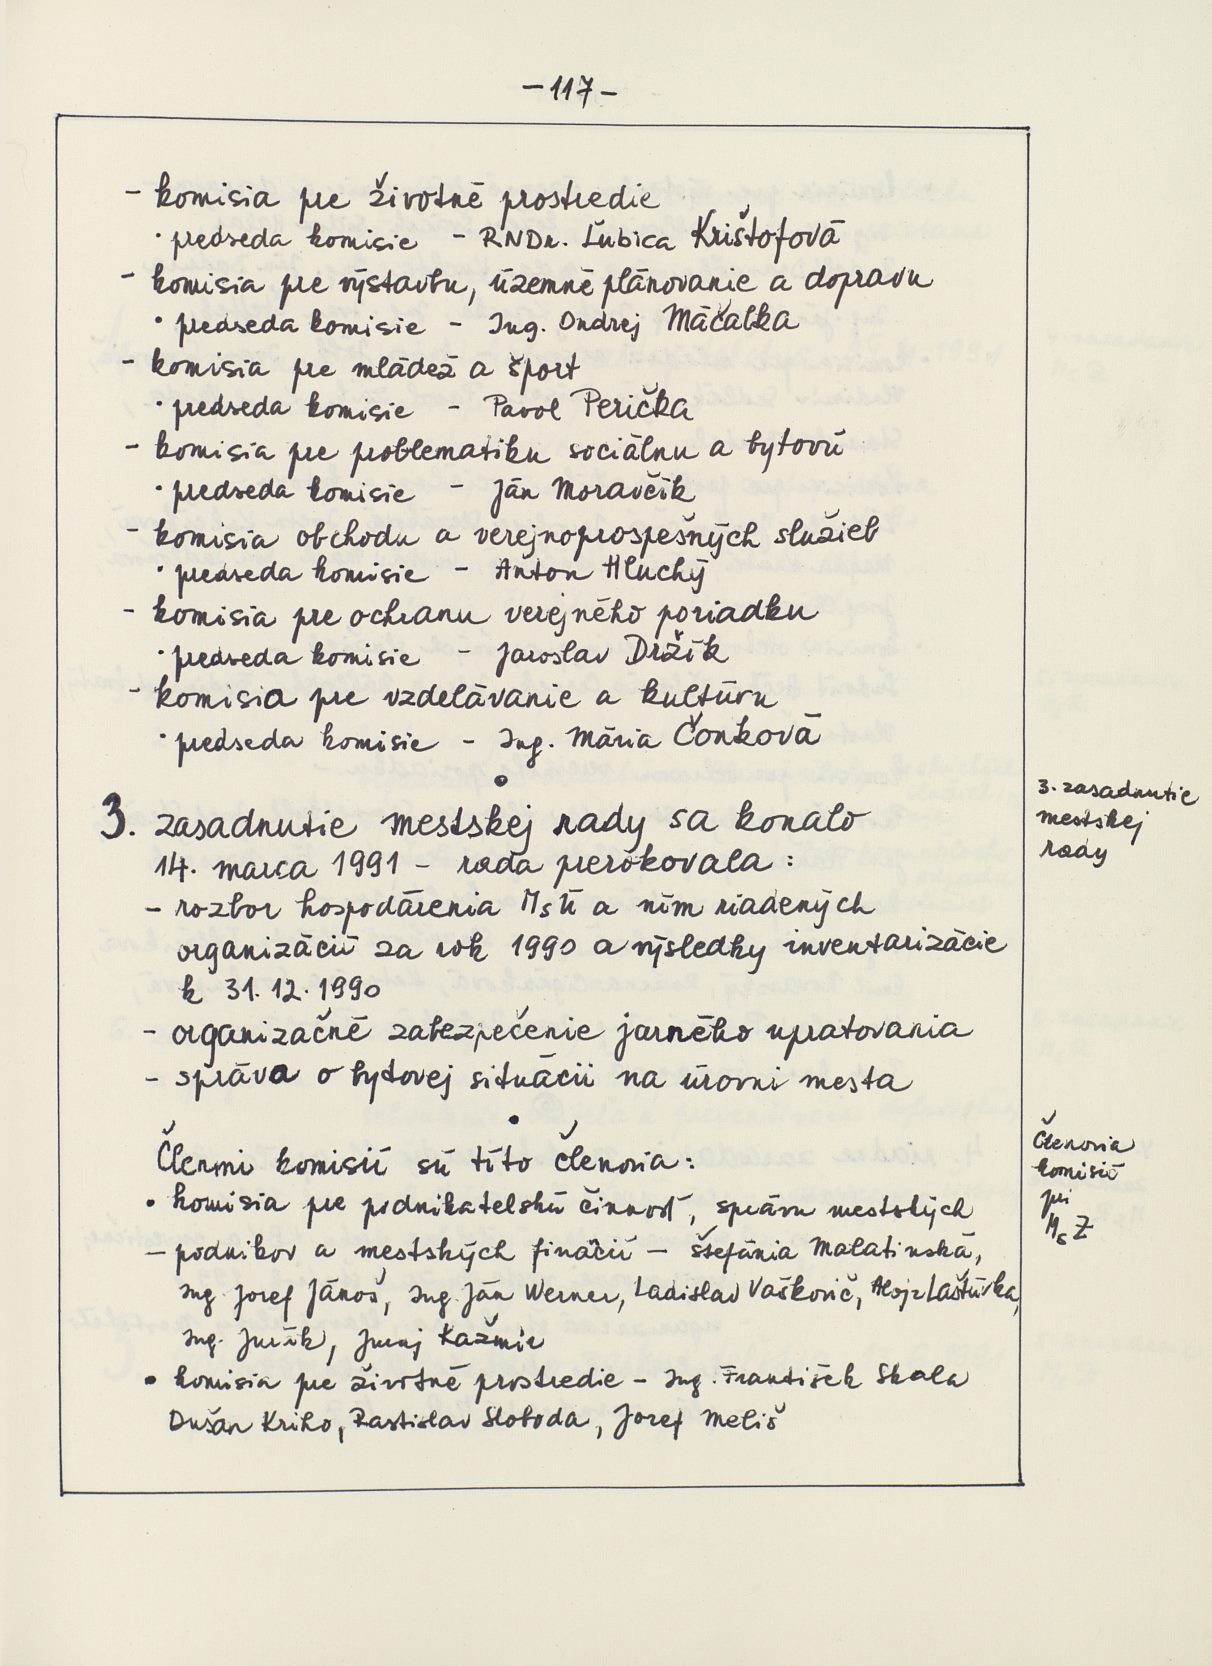 -117-
- komisia pre životné prostredie
· predseda komisie - RNDr. Ľubica Krištofová
- komisia pre výstavbu, územné plánovanie a dopravu
· predseda komisie - Ing. Ondrej Máčalka
- komisia pre mládež a šport
· predseda komisie - Pavol Perička
- komisia pre problematiku sociálnu a bytovú
· predseda komisie - Ján Moravčík
- komisia obchodu a verejnoprospešných služieb
· predseda komisie - Anton Hluchý
- komisia pre ochranu verejného poriadku
· predseda komisie - Jaroslav Držík
- komisia pre vzdelávanie a kultúru
· predseda komisie - Ing. Mária Čonková
3. zasadnutie mestskej rady sa konalo
14. marca 1991 - rada prerokovala:
- rozbor hospodárenia MsÚ a ním riadených
organizácií za rok 1990 a výsledky inventarizácie
k 31.12.1990
- organizačné zabezpečenie jarného upratovania
- správa o bytovej situácii na úrovni mesta
3. zasadnutie
mestskej
rady
Členmi komisií sú títo členovia:
• komisia pre podnikateľskú činnosť, správu mestských
- podnikov a mestských finacií - Štefánia Malatinská,
Ing Jozef Jánoš, Ing. Ján Werner, Ladislav Vaškovič, Alojz Laštúvka,
Ing. Jurák, Juraj Kažmír
• komisia pre životné prostredie - Ing. František Skala
Dušan Kriho, Rastislav Sloboda, Jozef Meliš
Členovia
komisií
pri
MsZ